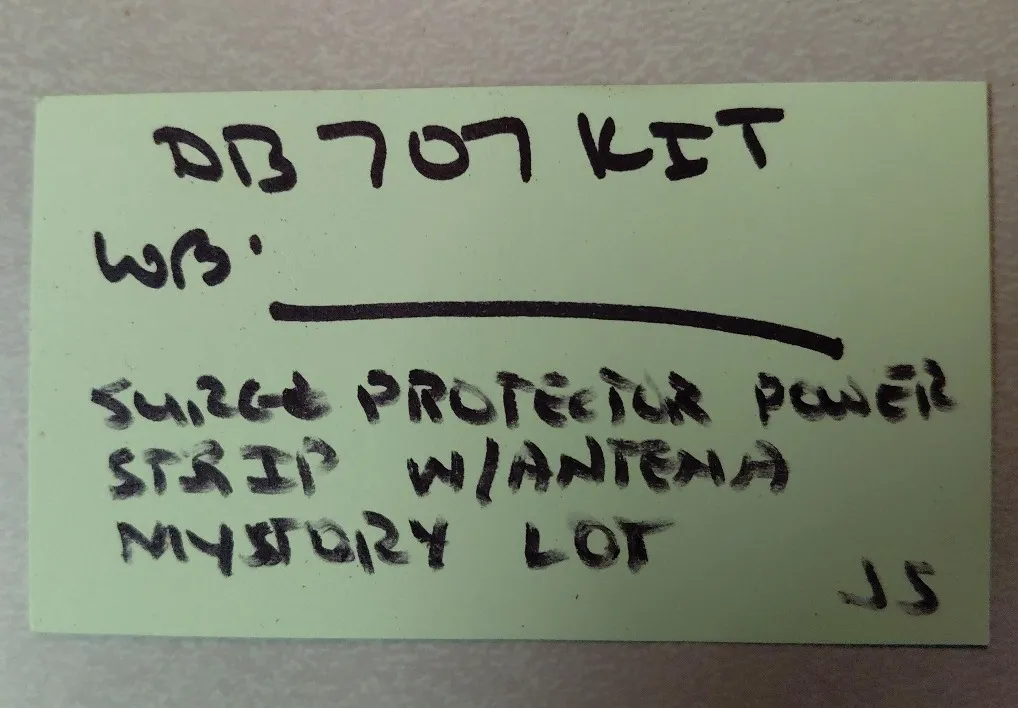 DB 707 KIT
WB.
SURGE PROTECTOR POWER
STRIP W/ANTENA
MYSTORY LOT
JS